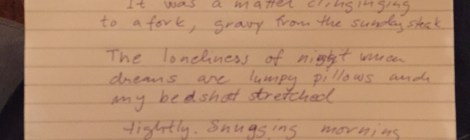 It was a matter clinginging
to a fork, gravy from the sunday steak
The loneliness of night when
dreams are lumpy pillows and
my bedshet stretched
tightly. Snugging morning